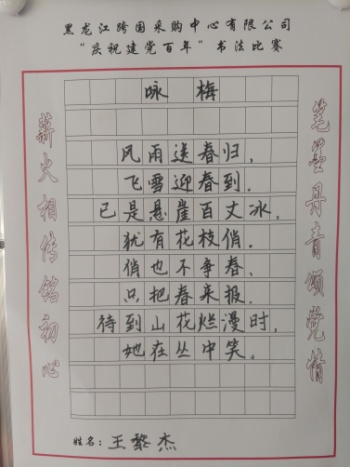 黑龙江跨国采购中心有限公司
“庆祝建党百年”书法比赛
咏 梅
风雨送春归，
飞雪迎春到．
已是悬崖百丈冰，
犹有花枝俏．
俏也不争春，
只把春来报．
待到山花烂漫时，
她在丛中笑。
笔墨丹青颂党情
薪火相传铭初心
姓名：王黎杰